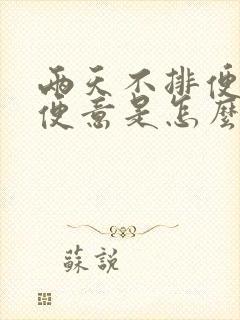 兩天不排便
便意是怎麼
蘇說